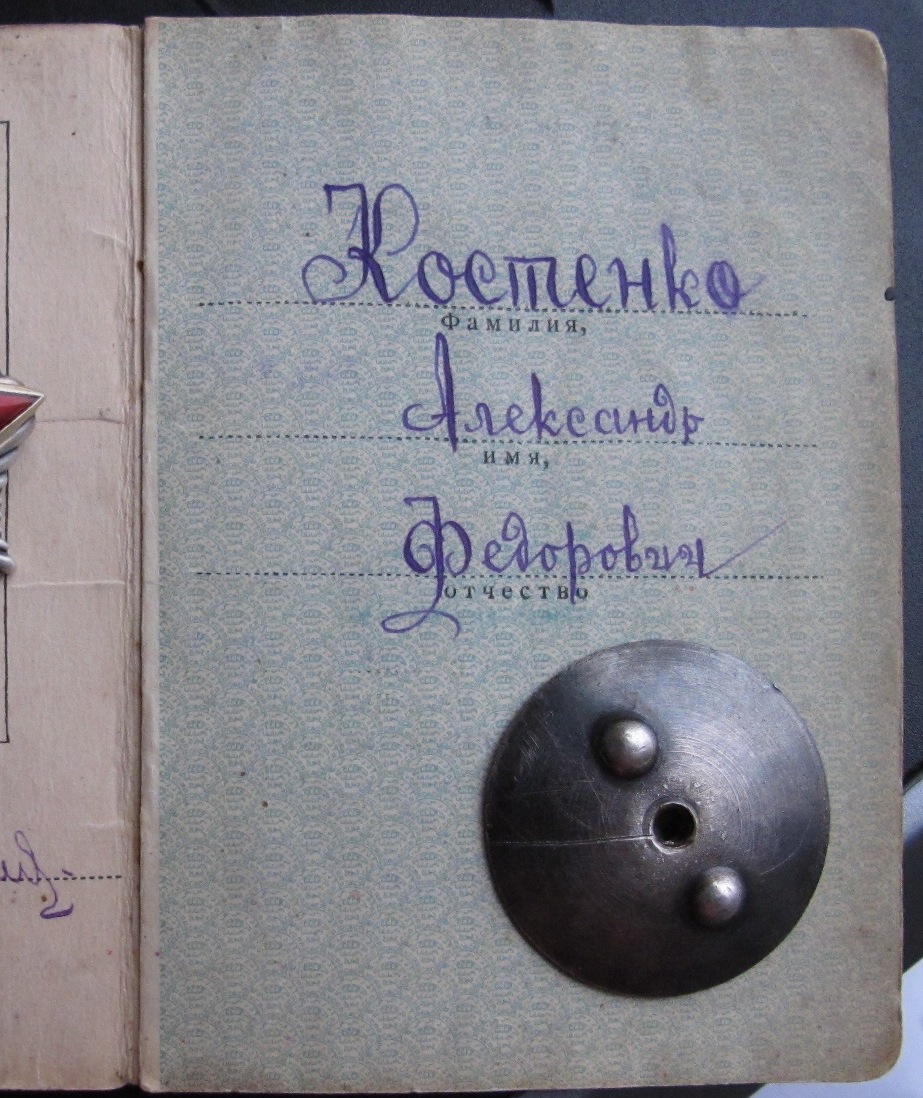 Костенко
Фамилия,
Александр
имя,
Федорович
отчество